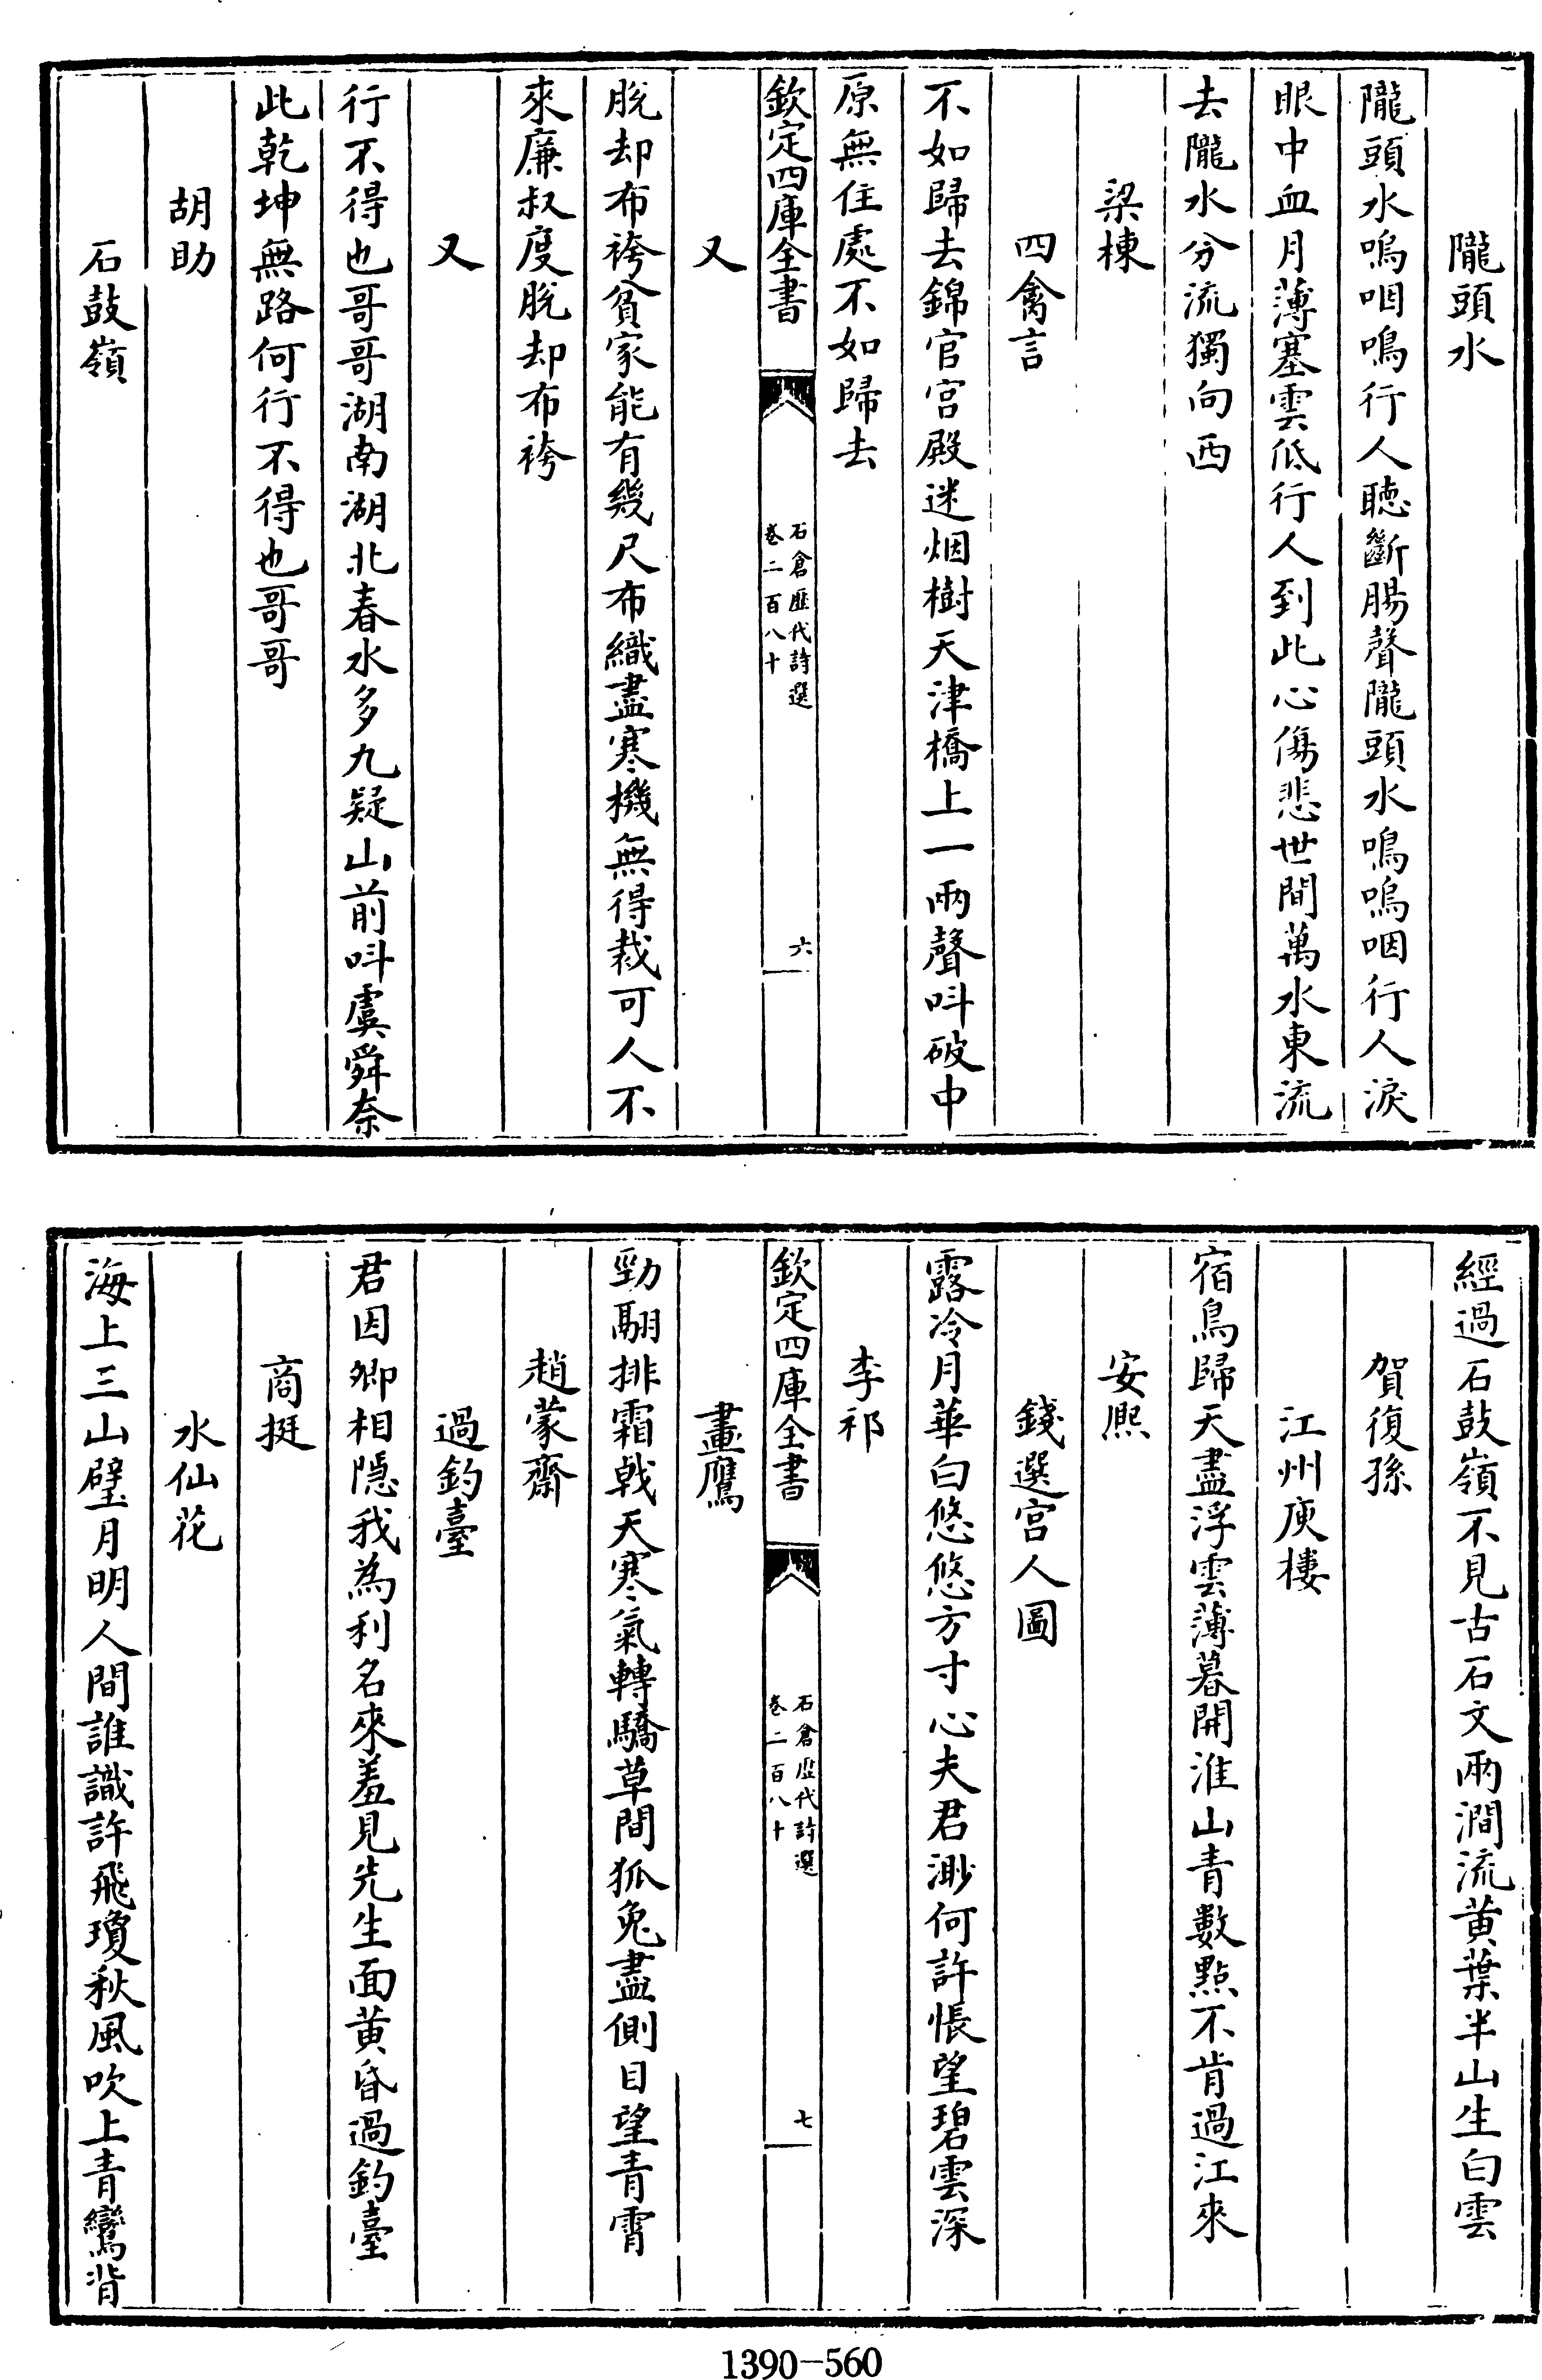 隴頭水
隴頭水嗚咽鳴行人聴斷腸聲隴頭水鳴嗚咽行人淚
眼中血月薄塞雲低行人到此心傷悲世間萬水東流
去隴水分流獨向西
梁棟
四禽言
不如歸去錦官宫殿迷烟樹天津橋上一兩聲呌破中
原無住處不如歸去
欽定四庫全書
石倉歴代詩選
卷二百八十
六
又
脱却布袴貧家能有幾尺布織盡寒機無得裁可人不
來廉叔度脱却布袴
又
行不得也哥哥湖南湖北春水多九疑山前呌虞舜奈
此乾坤無路何行不得也哥哥
胡助
石鼓嶺
經過石鼓嶺不見古石文兩澗流黄葉半山生白雲
賀復孫
江州庾樓
宿鳥歸天盡浮雲薄暮開淮山青數點不肯過江來
安熈
錢選宫人圖
露冷月華白悠悠方寸心夫君渺何許悵望碧雲深
李祁
欽定四庫全書
石倉歴代詩選
卷二百八十
七
畫鷹
勁翮排霜戟天寒氣轉驕草間狐兔盡側目望青霄
趙蒙齋
過釣臺
君因卿相隠我為利名來羞見先生面黄昏過釣臺
商挺
水仙花
海上三山璧月明人間誰識許飛瓊秋風吹上青鸞背
1390-560